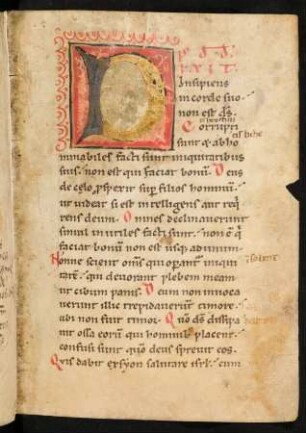 DIXIT
insipiens
in corde suo
non est d̄s.
Corrupti
sunt & abho
minabiles facti sunt iniquitatibus
suis. non est qui faciat bonū. Deus
de celo ꝓspexit sup filios hominū
ut uideat si est intelligens aut req̄
rens deum. Omnes declinauerunt
simul inutiles facti sunt. non ē q̇
faciat bonū non est usq; ad unum.
Nonne scient om̄s qui operant̄ iniqui
tatē. qui deuorant plebem meam
ut cibum panis. Deum non inuoca
uerunt illic trepidauerunt timore.
ubi non fuit timor. Quo d̄s dissipa
uit ossa eorū qui hominib; placent.
confusi sunt. quo deus spreuit eos.
Quis dabit ex syon salutare isrl. cum